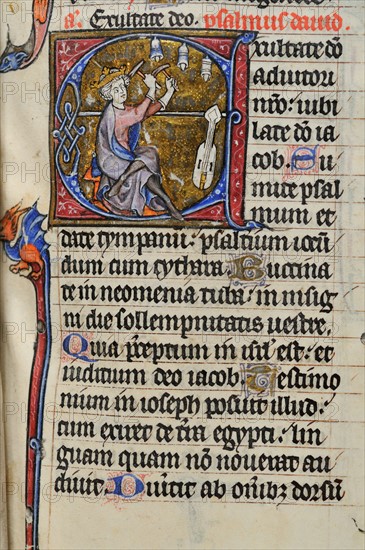 Exultate deo. psalmus dauid.
Exultate dō
adiutori
nr̄o: iubi
late dō ia
cob. Su
mite psal
mum et
date tympanū: psalterium iocū
dum cum cythara. Buccina
te in neomenia tuba: in insig
ni die sollempnitatis uestre.
Quia p̄ceptum in isr̄l est: et
iuditium deo iacob. Testimo
nium in ioseph posuit illud:
cum exiret de tr̄a egypti: lin
guam quam nō nouerat au
diuit. Diuertit ab onībꝫ dorsū